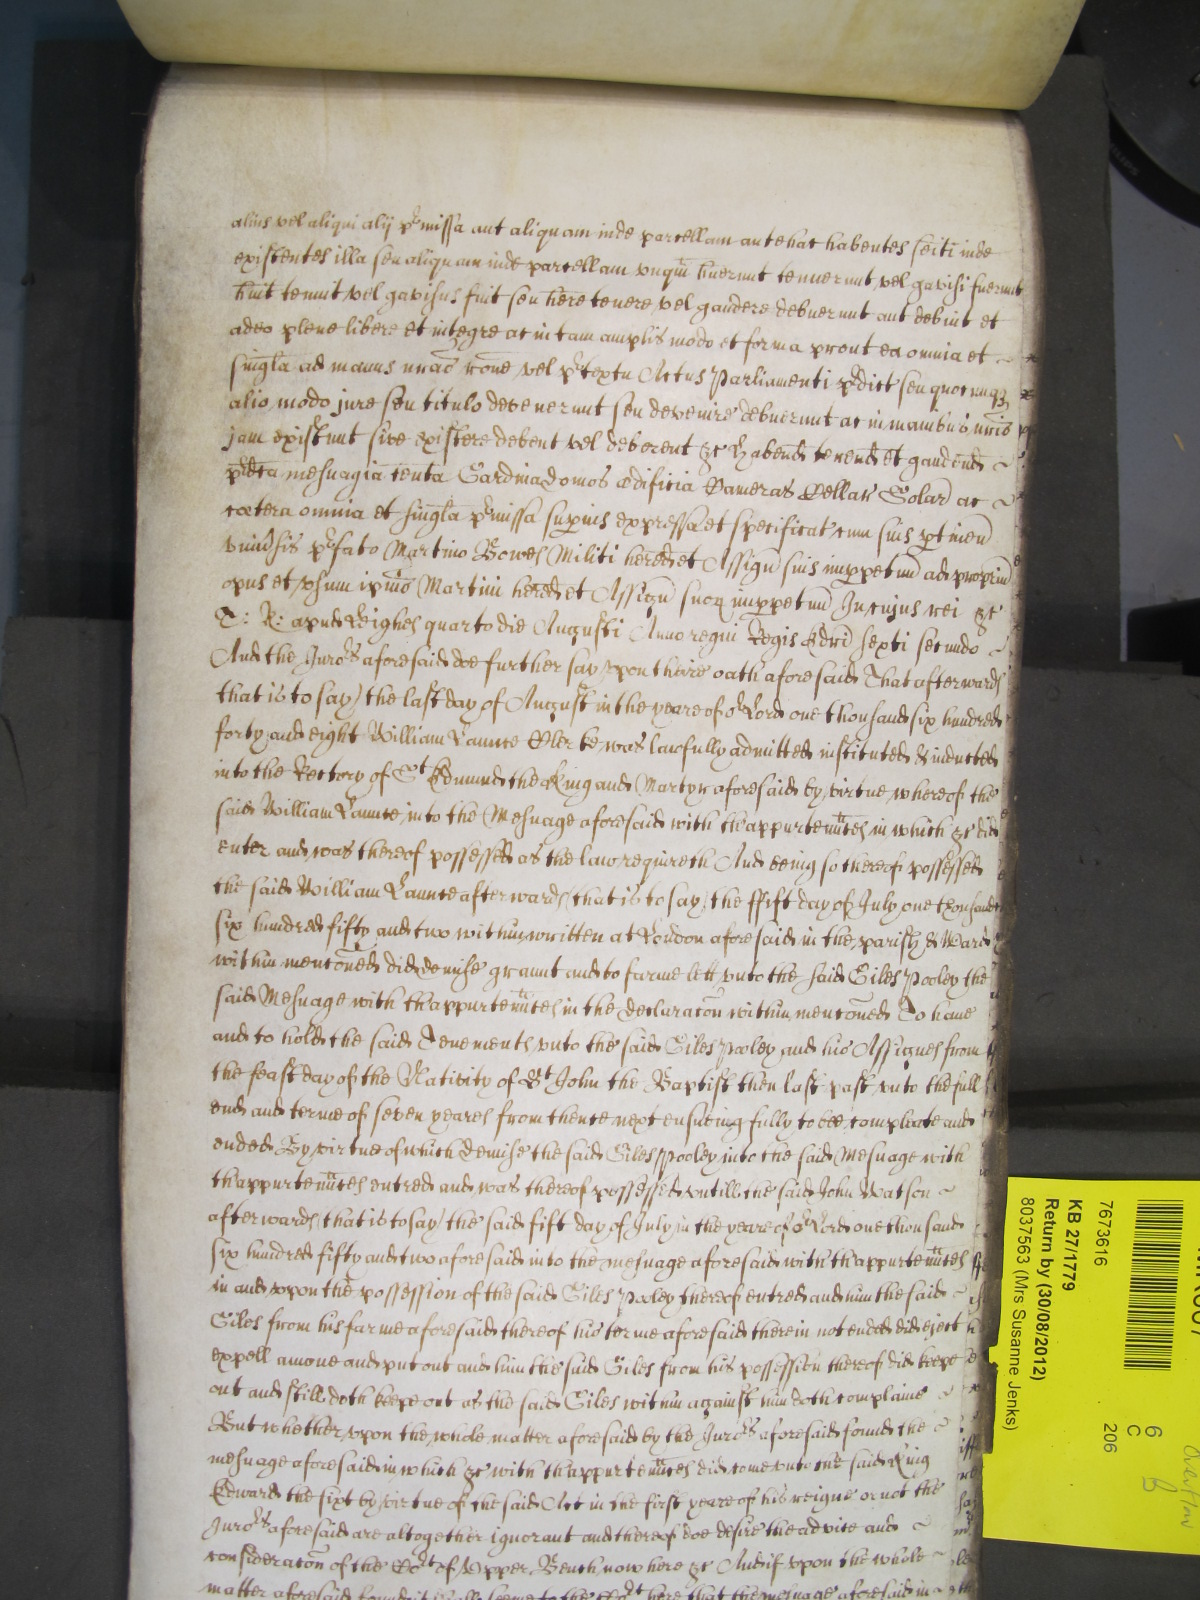 alius vel aliqui alij p'missa aut aliquam inde parcellam antehac habentes seiti inde
existentes illa seu aliquam inde parcellam unqm huerunt tenuerunt vel gavisi fuerunt
huit tenuit vel gavisus fuit seu here tenere vel gaudere debuerunt aut debuit et
adeo plene libere et integre ac in tam amplis modo et forma prout ea omnia et
singla ad manus nras rone vel p'textu Actus Parliamenti p'dict seu quocunqz
alio modo jure seu titulo devenerunt seu devenire debuerunt ac in manibus nris
jam existunt sive existere debent vel deberent &c Habend tenend et gaudend
p'dca mesuagia tenta Gardina domos ædificia Cameras Cellar Solar ac
cœtera omnia et singla p'missa supius expressa et specificat cum suis ptinen
univsis p'fato Martino Bowes Militi hered et Assign suis imppetuu ad propriu
opus et usum ipius Martini hered et Assign suoq imppetuu In cujus rei &c
T: R: apud Leighes quarto die Augusti Anno regni Regis Edwi sexti secundo
And the Juro's aforesaid doe further say upon theire oath aforesaid That afterwards
that is to say the last day of August in the yeare of o'r Lord one thousand six hundred
forty and eight William Launce Clerke was lawfully admitted instituted & inducted
into the Rectory of St Edmund the King and Martyr aforesaid by virtue whereof the
said William Launce into the Mesuage aforesaid with thappurtennces in which &c did
enter and was thereof possessed as the law requireth And being so thereof possessed
the said William Launce afterwards that is to say the ffift day of July one thousand
six hundred fifty and two within written at London aforesaid in the parish & Ward
within menconed did demise graunt and to farme lett unto the said Giles Pooley the
said Mesuage with thappurtennces in the declaracon within menconed To have
and to hold the said Tenements unto the said Giles Pooley and his Assignes from
the feast day of the Nativity of St John the Baptist then last past unto the full
end and terme of seven yeares from thence next ensueing fully to bee compleate and
ended By virtue of which Demise the said Giles Pooley into the said Mesuage with
thappurtennces entred and was thereof possessed untill the said John Watson
afterwards that is to say the said fift day of July in the yeare of o'r Lord one thousand
six hundred fifty and two aforesaid into the mesuage aforesaid with thappurtennces
in and upon the possession of the said Giles Pooley thereof entred and him the said
Giles from his farme aforesaid thereof his terme aforesaid therein not ended did eject
expell amove and put out and him the said Giles from his possession thereof did keepe
out and still doth keepe out as the said Giles within against him doth complaine
But whether upon the whole matter aforesaid by the Juro's aforesaid found the
mesuage aforesaid in which &c with thappurtennces did come unto the said King
Edward the sixt by virtue of the said Act in the first yeare of his reigne or not the
Juro's aforesaid are altogether ignorant and thereof doe desire the advice and
consideracon of the Co't of Upper Bench now here &c And if upon the whole
matter aforesaid found it shall seeme to the Co't here that the mesuage aforesaid in
7673616
KB 27/1779
Return by (30/08/2012)
8037563 (Mrs Susanne Jenks)
6
C
206